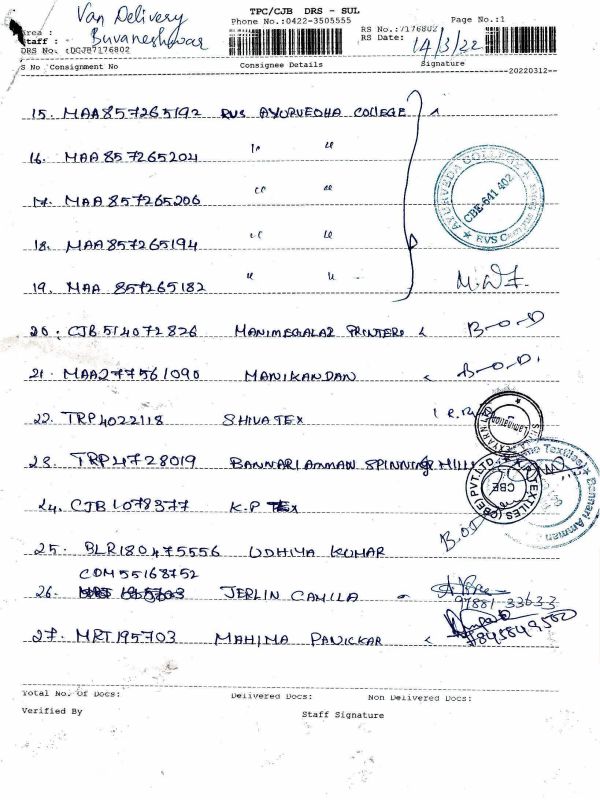 TPC/CJB DRS - SUL
Van Delivery
Phone No.:0422-3505555
Page No.:1
Area :
Staff : Buvaneshwar
RS No.:7176802
RS Date: 14/3/22
DRS No. :DCJB7176802
S No Consignment No Consignee Details Signature
20220312
15. MAA857265192 RVS AYURVEDHA COLLEGE
16. MAA857265204 " "
17. MAA857265206 " "
18. MAA857265194 " "
19. MAA 857265182 " "
AYURVEDA COLLEGE
CBE-641 402
20. CJB514072826 MANIMEGALAI PRINTERS B-O-D
21. MAA277561090 MANIKANDAN B-O-D.
22. TRP4022118 SHIVA TEX
23. TRP4728019 BANNARI AMMAN SPINNING MILL
CBE
24. CJB1078377 K.P TEX
25. BLR180475556 UDHIYA KUMAR B.O.D
CDM55168752
26. JERLIN CAMILA
97881 33633
27. MRT195703 MAHIMA PANICKAR
Total No. Of Docs: Delivered Docs: Non Delivered Docs:
Verified By Staff Signature